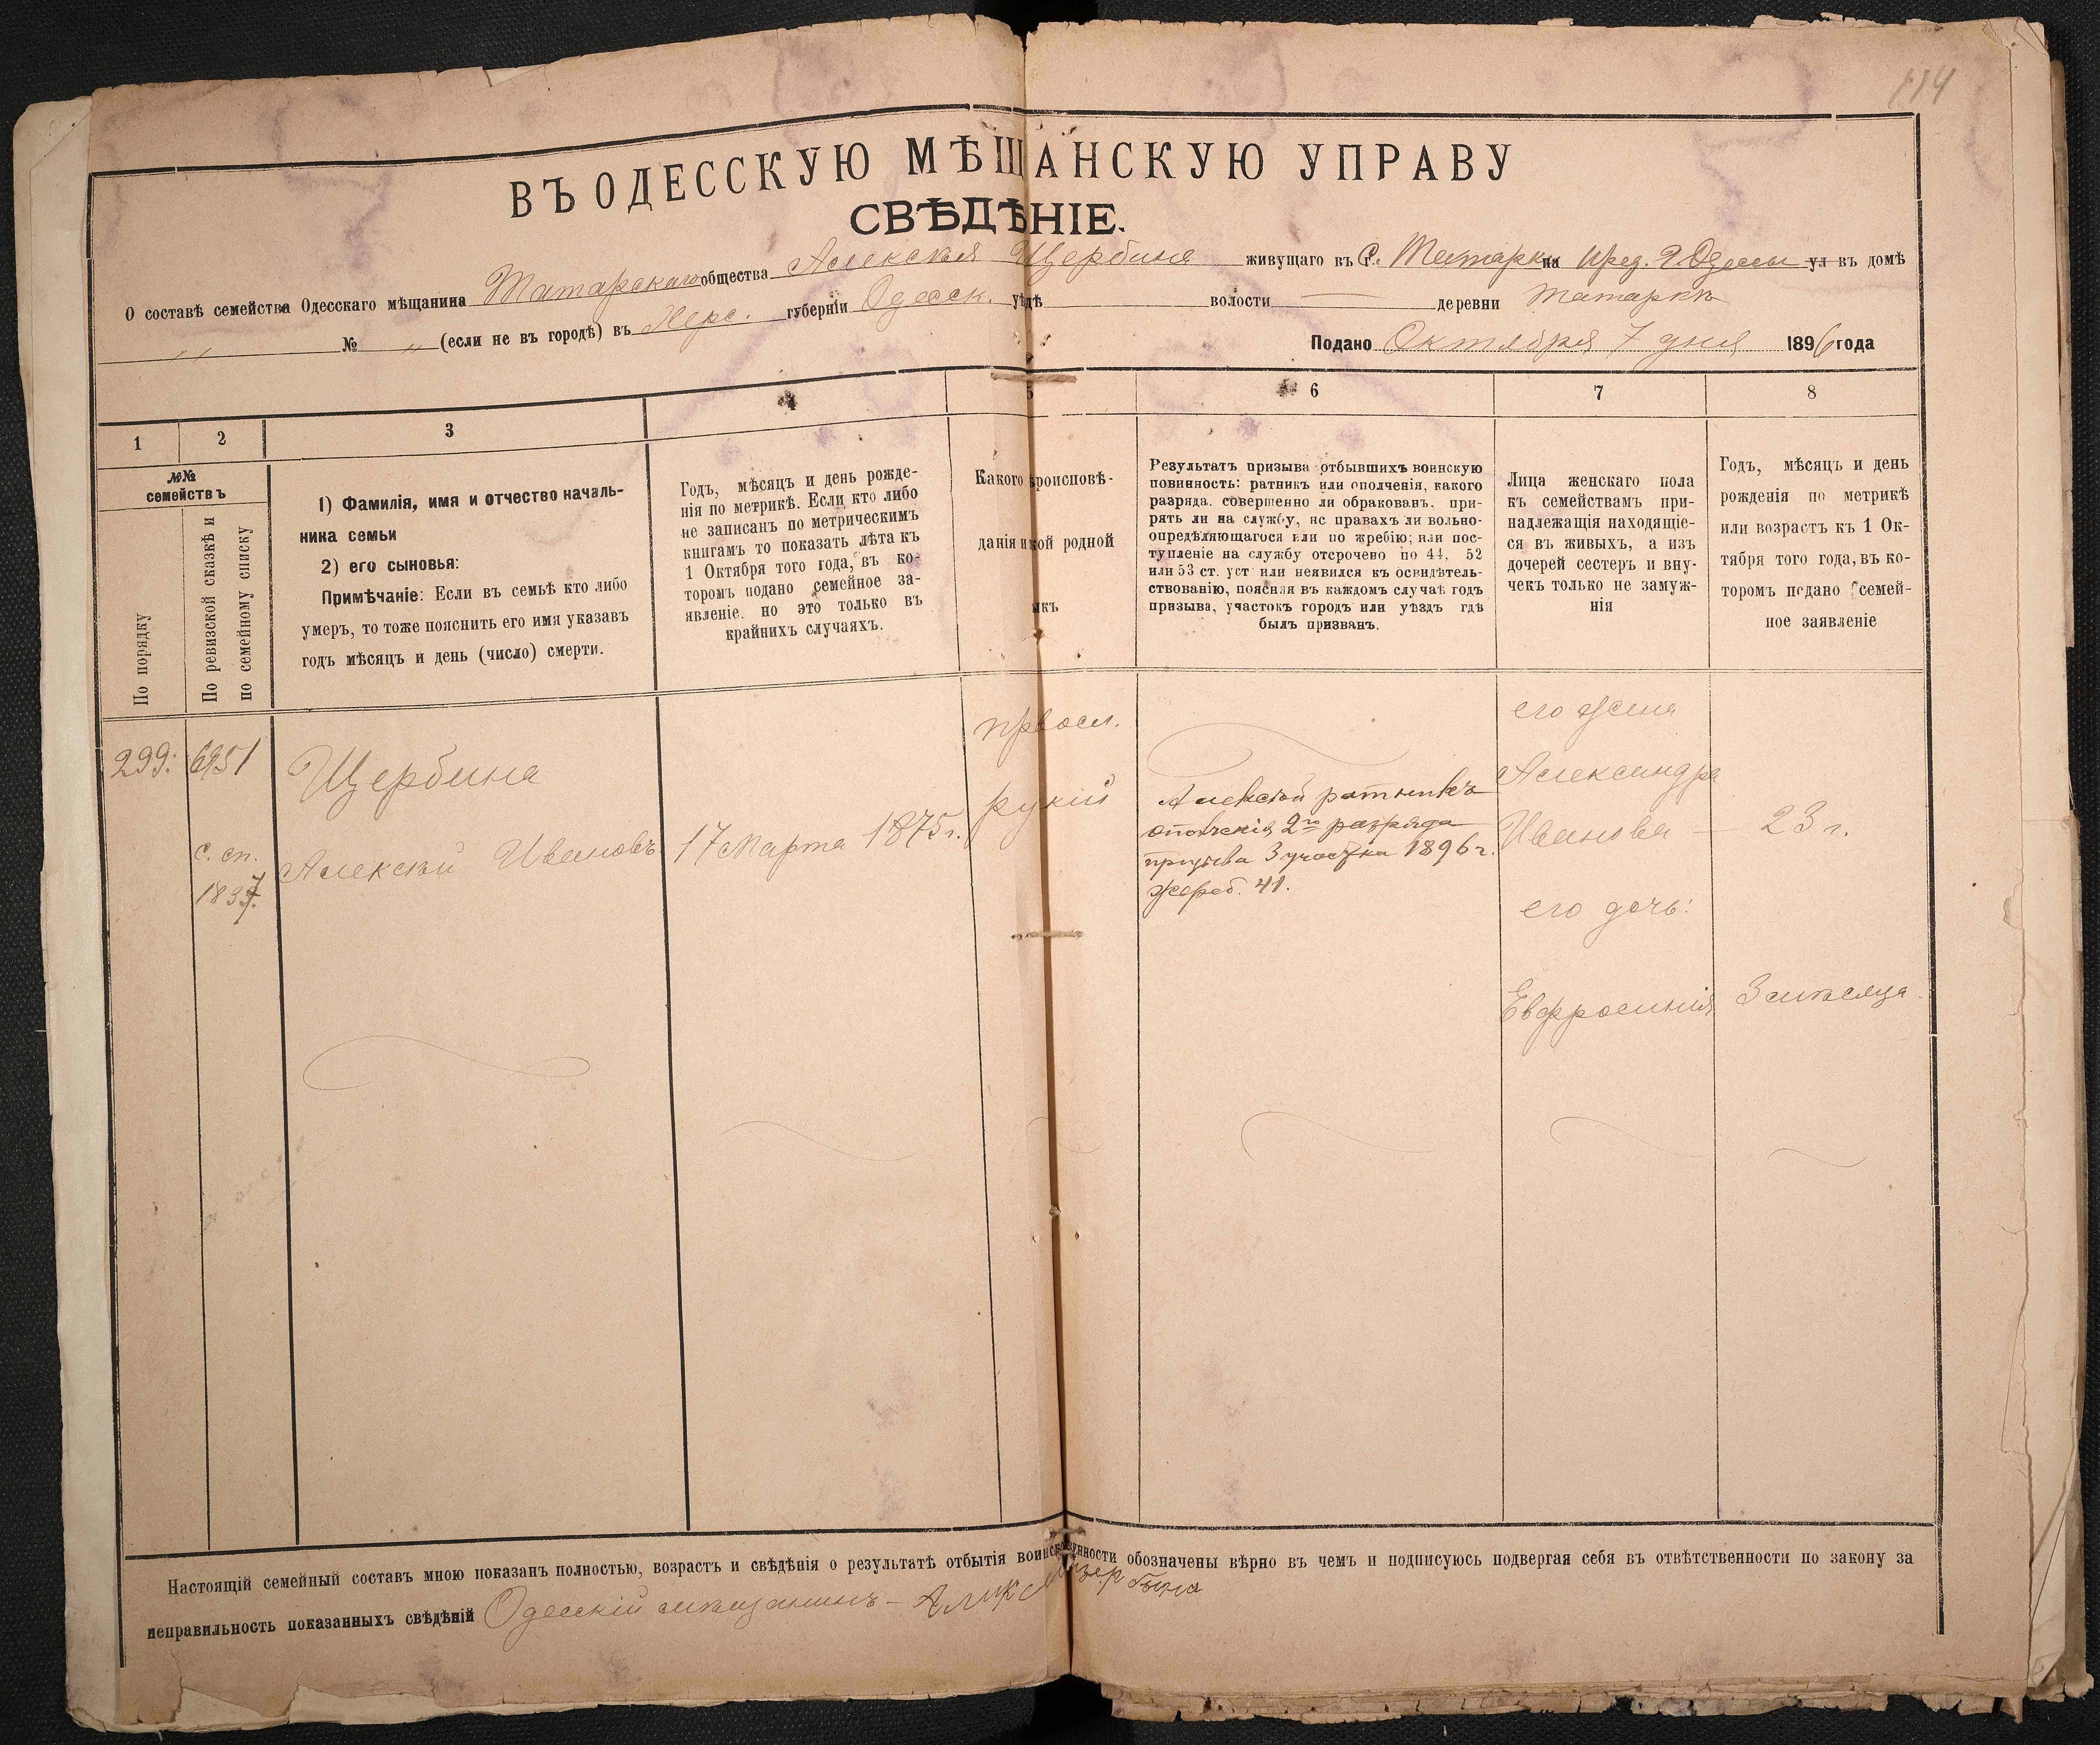 114
ВЪ ОДЕССКУЮ МѢЩАНСКУЮ УПРАВУ
СВѢДѢНІЕ.
О составѣ семейства Одесскаго мѣщанина Татарскаго общества Алексѣя Щербина живущаго въ С. Татарки на Пред. г. Одессы ул въ домѣ
„ № „ (если не въ городѣ) въ Херс. губерніи Одесск. уѣдѣ волости — деревни Татаркѣ
Подано Октября 7 дня 1896 года
1 2 3 4 5 6 7 8
№№ семействъ
По порядку
По ревизской сказкѣ и
по семейному списку
1) Фамилія, имя и отчество началь-
ника семьи
2) его сыновья:
Примѣчаніе: Если въ семьѣ кто либо
умеръ, то тоже пояснить его имя указавъ
годъ мѣсяцъ и день (число) смерти.
Годъ, мѣсяцъ и день рожде-
нія по метрикѣ. Если кто либо
не записанъ по метрическимъ
книгамъ то показать лѣта къ
1 Октября того года, въ ко-
торомъ подано семейное за-
явленіе, но это только въ
крайнихъ случаяхъ.
Какого вроисповѣ-
данія и кой родной
якъ
Результатъ призыва отбывшихъ воинскую
повинность: ратникъ или ополченія, какого
разряда, совершенно ли обракованъ, при-
рятъ ли на службу, нс правахъ ли вольно-
опредѣляющагося или по жребію; или пос-
тупленіе на службу отсрочено по 44, 52
или 53 ст. уст или неявился къ освидѣтель-
ствованію, поясняя въ каждомъ случаѣ годъ
призыва, участокъ городъ или уѣздъ гдѣ
былъ призванъ.
Лица женскаго пола
къ семействамъ при-
надлежащія находящіе-
ся въ живыхъ, а изъ
дочерей сестеръ и вну-
чекъ только не замуж-
нія
Годъ, мѣсяцъ и день
рожденія по метрикѣ
или возрастъ къ 1 Ок-
тября того года, въ ко-
торомъ педано семей-
ное заявленіе
299. 6951
с. сп.
Щербина
Алексѣй Ивановъ
17 Марта 1875 г.
Алексѣй ратникъ
ополченія 2го разряда
призыва 3 участка 1896 г.
Жереб. 41.
его жена
Александра
Иванова — 23 г.
его дочь:
Евфросинія 3 мѣсяца.
Настоящій семейный составъ мною показанъ полностью, возрастъ и свѣдѣнія о результатѣ отбытія воинской повинности обозначены вѣрно въ чемъ и подписуюсь подвергая себя въ отвѣтственности по закону за
неправильность показанныхъ свѣдѣній Одесскій мѣщанинъ –